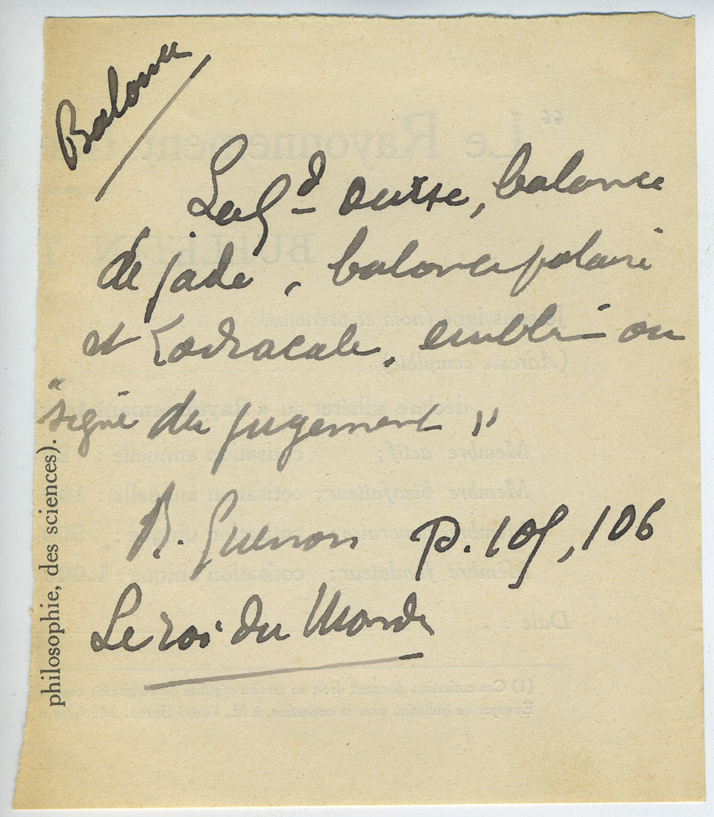 Balance
La gde ourse, balance
de jade, balance polaire
et zodiacale, emblè- ou
"signe du jugement"
R. Guenon p. 105, 106
Le roi du Monde
philosophie, des sciences).
"Le Rayonnement
BULLETIN
(nom et prénoms)
(Adresse complète)
déclare adhérer au « Rayonnement
Membre actif; cotisation annuelle :
Membre bienfaiteur; cotisation annuelle :
Membre fondateur; cotisation unique : 1.0
Date :